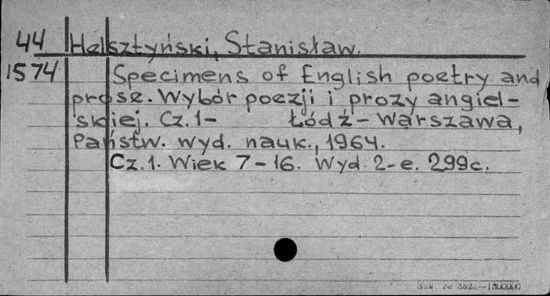 44 Helsztyński, Stanisław.
1574 Specimens of English poetry and
prose. Wybór poezji i prozy angiel-
skiej. Cz.1- Łódź-Warszawa,
Państw. wyd. nauk., 1964.
Cz.1. Wiek 7-16. Wyd. 2-e. 299c.